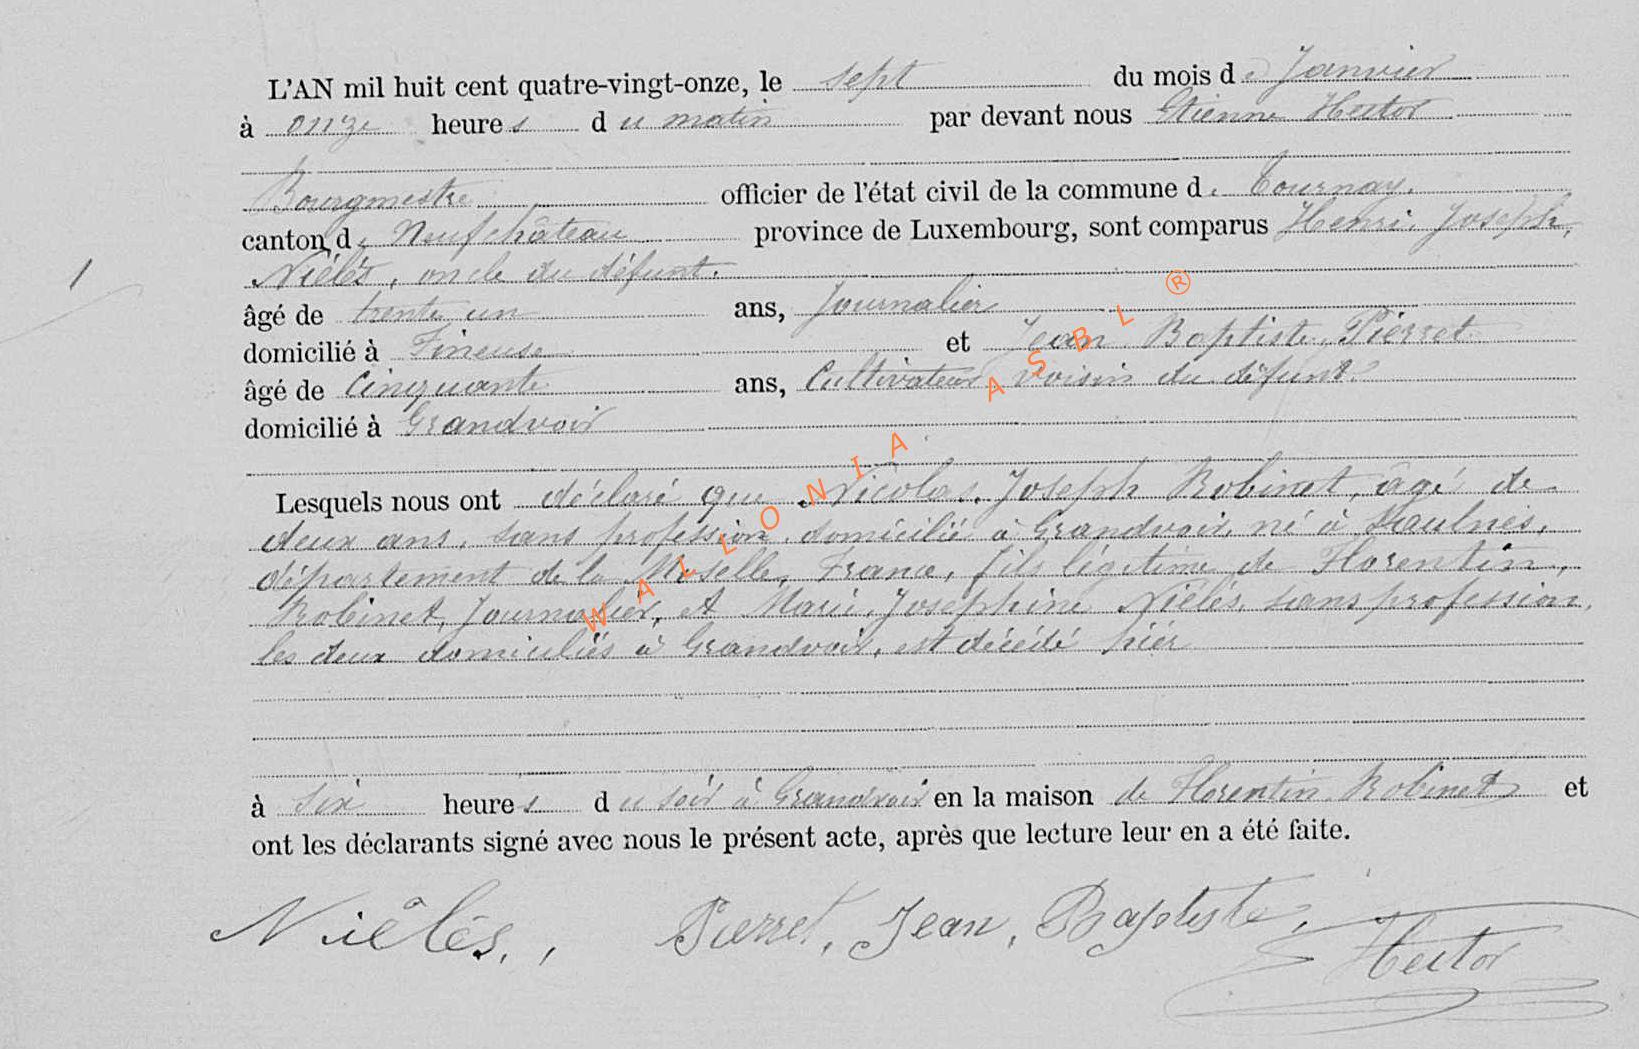 L'AN mil huit cent quatre-vingt-onze, le sept du mois de Janvier
à onze heures du matin par devant nous Etienne Hector
Bourgmestre officier de l'état civil de la commune de Tournay.
canton de Neufchâteau province de Luxembourg, sont comparus Henri, Joseph,
Niélès, oncle du défunt.
1
âgé de trente un ans, Journalier
domicilié à Fineuse et Jean Baptiste Pierret
âgé de Cinquante ans, Cultivateur voisin du défunt.
domicilié à Grandvoir
Lesquels nous ont déclaré que Nicolas, Joseph Robinet, âgé de
deux ans, sans profession, domicilié à Grandvoir, né à
département de la Moselle, France, fils légitime de Florentin,
Robinet, Journalier, et Marie, Josephine Nièlès, sans profession,
les deux domiciliés à Grandvoir, est décédé hiér
à six heures du soir à Grandvoir en la maison de Florentin Robinet et
ont les déclarants signé avec nous le présent acte, après que lecture leur en a été faite.
Niêlès, Pierret, Jean, Baptiste, Hector
WALLONIA ASBL ®